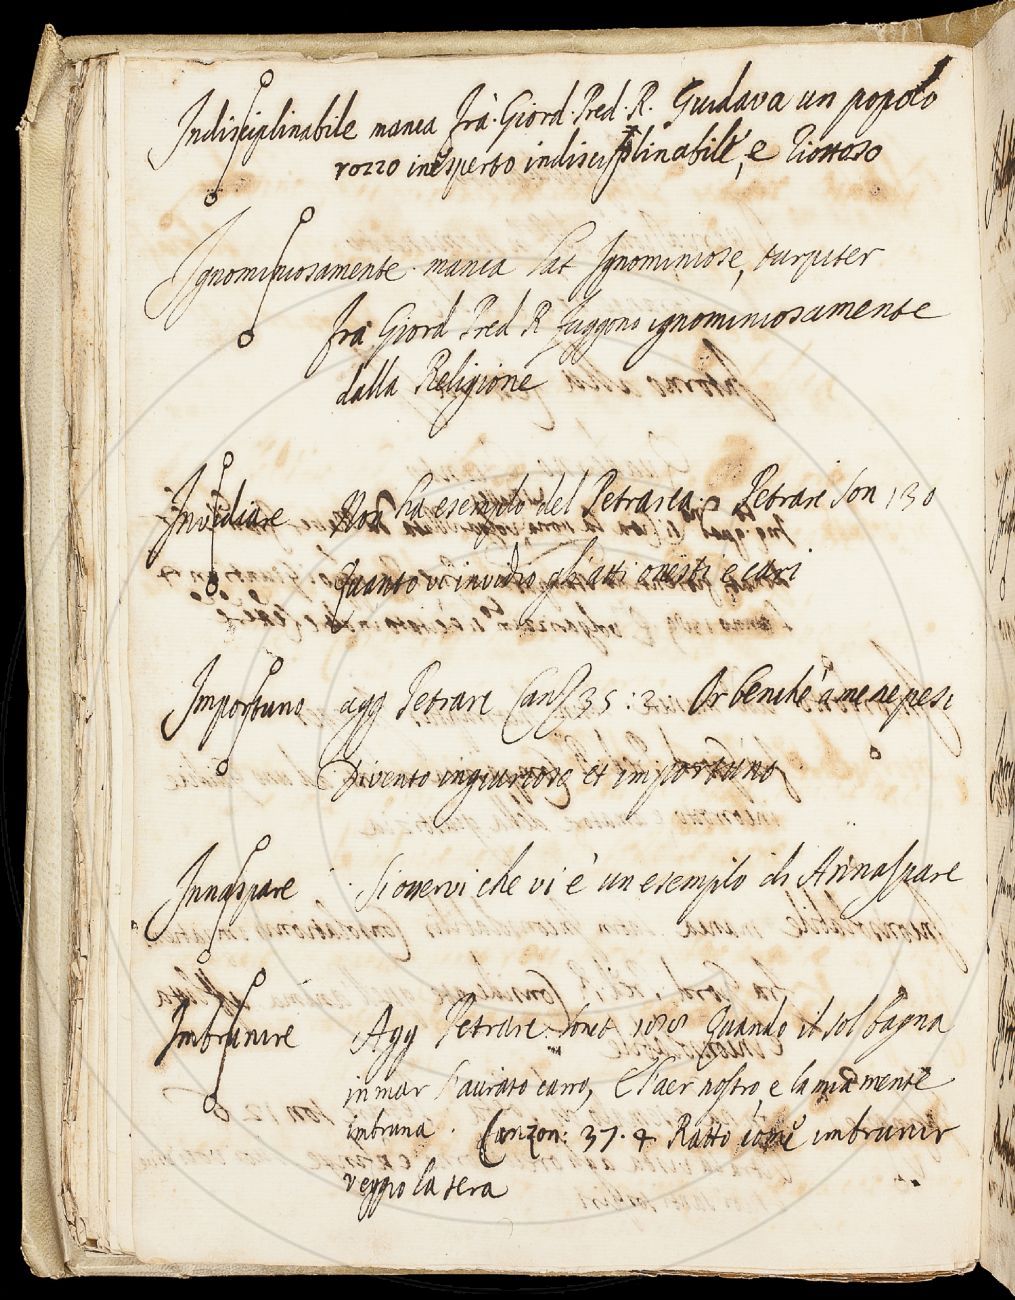 Indisciplinabile manca frà Giord. Pred. R. Guidava un popolo
rozzo inesperto indisciplinabile, e
Ignominiosamente manca Lat Ignominiose, turpiter
frà Giord Pred R fuggono ignominiosamente
dalla Religione
Invidiare Non ha esempio del Petrarca. Petrarc Son 130
quanto vi invidio gli atti onesti e cari
Importuno agg Petrarc Canz 35 : 2 Or benchè a me ne pesi
Divento ingiurioso et importuno
Innaspare Si overvi che vi è un esempio di Annaspare
Imbrunire Agg Petrarc Sonet Quando il sol bagna
in mar l'aurato carro, E l'aer nostro, e la mia mente
imbruna . Canzon: 37. 4 Ratto come imbrunir
veggio la sera